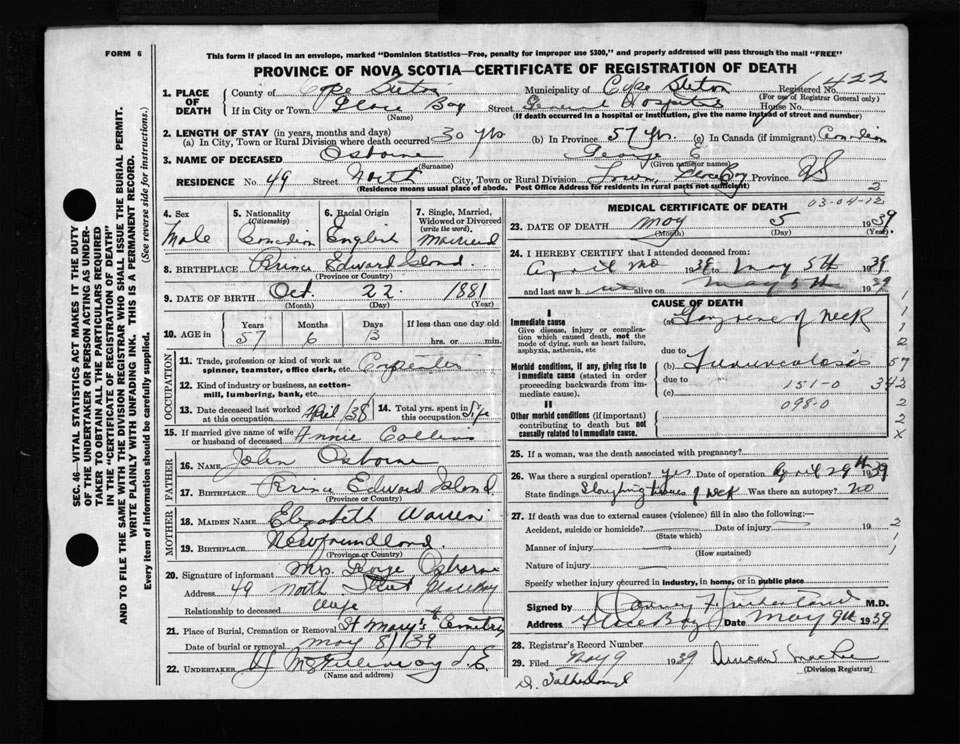 FORM 6
This form if placed in an envelope, marked "Dominion Statistics—Free, penalty for improper use $300," and properly addressed will pass through the mail "FREE"
PROVINCE OF NOVA SCOTIA—CERTIFICATE OF REGISTRATION OF DEATH
1. PLACE OF DEATH County of Cape Breton Municipality of Cape Breton Registered No. 422
(For use of Registrar General only)
If in City or Town Glace Bay Street General Hospital House No.
(Name) (If death occurred in a hospital or institution, give the name instead of street and number)
2. LENGTH OF STAY (in years, months and days)
(a) In City, Town or Rural Division where death occurred 30 yrs (b) In Province 57 yrs. (c) In Canada (if immigrant) Canadian
3. NAME OF DECEASED Osborne George E
(Surname) (Given name or names)
RESIDENCE No. 49 Street North City, Town or Rural Division Town, Glace Bay Province NS
(Residence means usual place of abode. Post Office Address for residents in rural parts not sufficient) 2
4. Sex Male
5. Nationality (Citizenship) Canadian
6. Racial Origin English
7. Single, Married, Widowed or Divorced (write the word) Married
8. BIRTHPLACE Prince Edward Island.
(Province or Country)
9. DATE OF BIRTH Oct. 22 1881
(Month) (Day) (Year)
10. AGE in Years 57 Months 6 Days 13 If less than one day old hrs. or min.
OCCUPATION
11. Trade, profession or kind of work as spinner, teamster, office clerk, etc. Carpenter
12. Kind of industry or business, as cotton-mill, lumbering, bank, etc.
13. Date deceased last worked at this occupation April/38 14. Total yrs. spent in this occupation Life
15. If married give name of wife or husband of deceased Annie Collins
FATHER
16. NAME John Osborne
17. BIRTHPLACE Prince Edward Island.
(Province or Country)
MOTHER
18. MAIDEN NAME Elizabeth Warren
19. BIRTHPLACE Newfoundland.
(Province or Country)
20. Signature of informant Mrs. George Osborne
Address 49 North Street Glace Bay
Relationship to deceased Wife
21. Place of Burial, Cremation or Removal St Mary's Cemetry
Date of burial or removal May 8/139
22. UNDERTAKER
(Name and address)
MEDICAL CERTIFICATE OF DEATH
03-04-12
23. DATE OF DEATH May 5 1939
(Month) (Day) (Year)
24. I HEREBY CERTIFY that I attended deceased from:
April 1939 to May 5th 1939
and last saw h im alive on May 5th 1939
CAUSE OF DEATH
I
Immediate cause
Give disease, injury or complication which caused death, not the mode of dying, such as heart failure, asphyxia, asthenia, etc
(a) Gangrene of neck
due to
Morbid conditions, if any, giving rise to immediate cause (stated in order proceeding backwards from immediate cause).
(b) Furunculosis
due to 151-0
(c)
II
098-0
Other morbid conditions (if important) contributing to death but not causally related to immediate cause.
1
1
2
57
342
2
2
X
25. If a woman, was the death associated with pregnancy?
26. Was there a surgical operation? yes Date of operation April 29th 1939
State findings Sloughing tissues of neck Was there an autopsy? no
27. If death was due to external causes (violence) fill in also the following:—
Accident, suicide or homicide? Date of injury 19
(State which)
Manner of injury
(How sustained)
Nature of injury
2
1
1
Specify whether injury occurred in industry, in home, or in public place
Signed by M.D.
Address Glace Bay Date May 9th 1939
28. Registrar's Record Number
29. Filed May 9 1939
(Division Registrar)
SEC. 46—VITAL STATISTICS ACT MAKES IT THE DUTY OF THE UNDERTAKER OR PERSON ACTING AS UNDERTAKER TO OBTAIN ALL THE PARTICULARS REQUIRED IN THE "CERTIFICATE OF REGISTRATION OF DEATH" AND TO FILE THE SAME WITH THE DIVISION REGISTRAR WHO SHALL ISSUE THE BURIAL PERMIT.
WRITE PLAINLY WITH UNFADING INK. THIS IS A PERMANENT RECORD.
Every item of information should be carefully supplied. (See reverse side for instructions.)